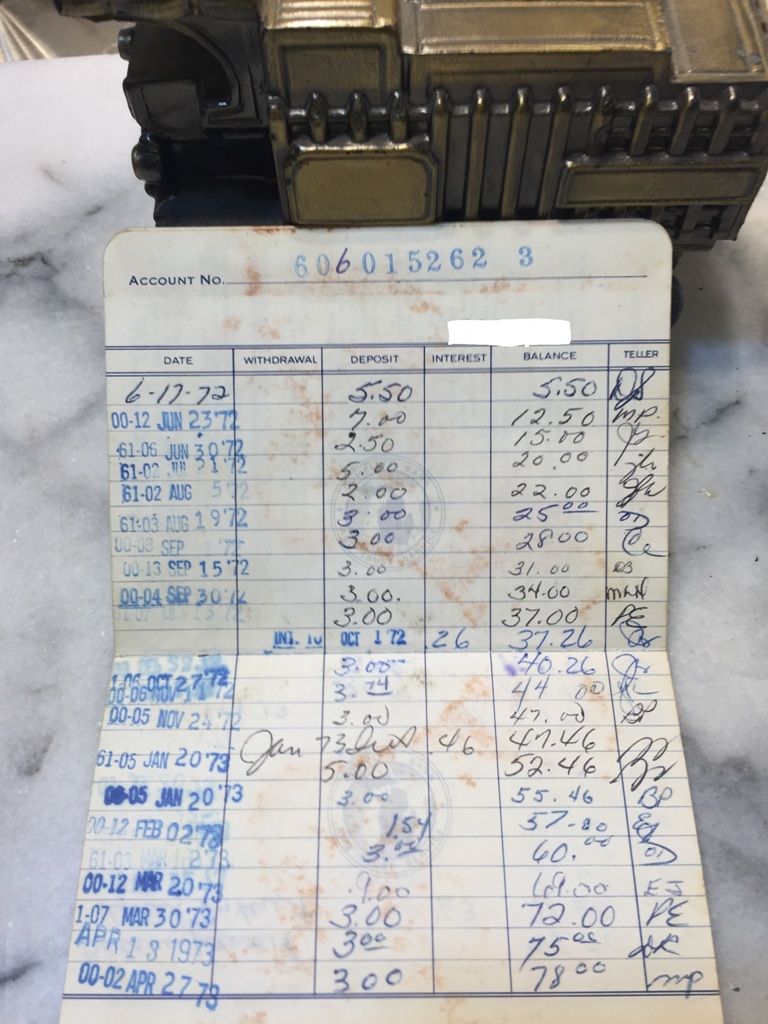 ACCOUNT NO. 606015262 3
DATE WITHDRAWAL DEPOSIT INTEREST BALANCE TELLER
6-17-72 5.50 5.50
00-12 JUN 23'72 7.00 12.50 MP.
61-06 JUN 30'72 2.50 15.00
61-02 21'72 5.00 20.00
61-02 AUG 5'72 2.00 22.00
61-03 AUG 19'72 3.00 25.00
SEP '72 3.00 28.00
00-13 SEP 15'72 3.00 31.00
00-04 SEP 30'72 3.00. 34.00
3.00 37.00 PE
INT. TO OCT 1'72 .26 37.26
1-06 OCT 27'72 3.00 40.26
00-06 NOV '72 3.74 44 00
00-05 NOV 24'72 3.00 47.00 BP
Jan 73 Int .46 47.46
61-05 JAN 20'73 5.00 52.46
00-05 JAN 20'73 3.00 55.46 BP
00-12 FEB 02'73 1.54 57.00
61-03 MAR '73 3.00 60.00
00-12 MAR 20'73 9.00 69.00
1-07 MAR 30'73 3.00 72.00 PE
APR 13 1973 3.00 75.00
00-02 APR 27 73 3.00 78.00 mp